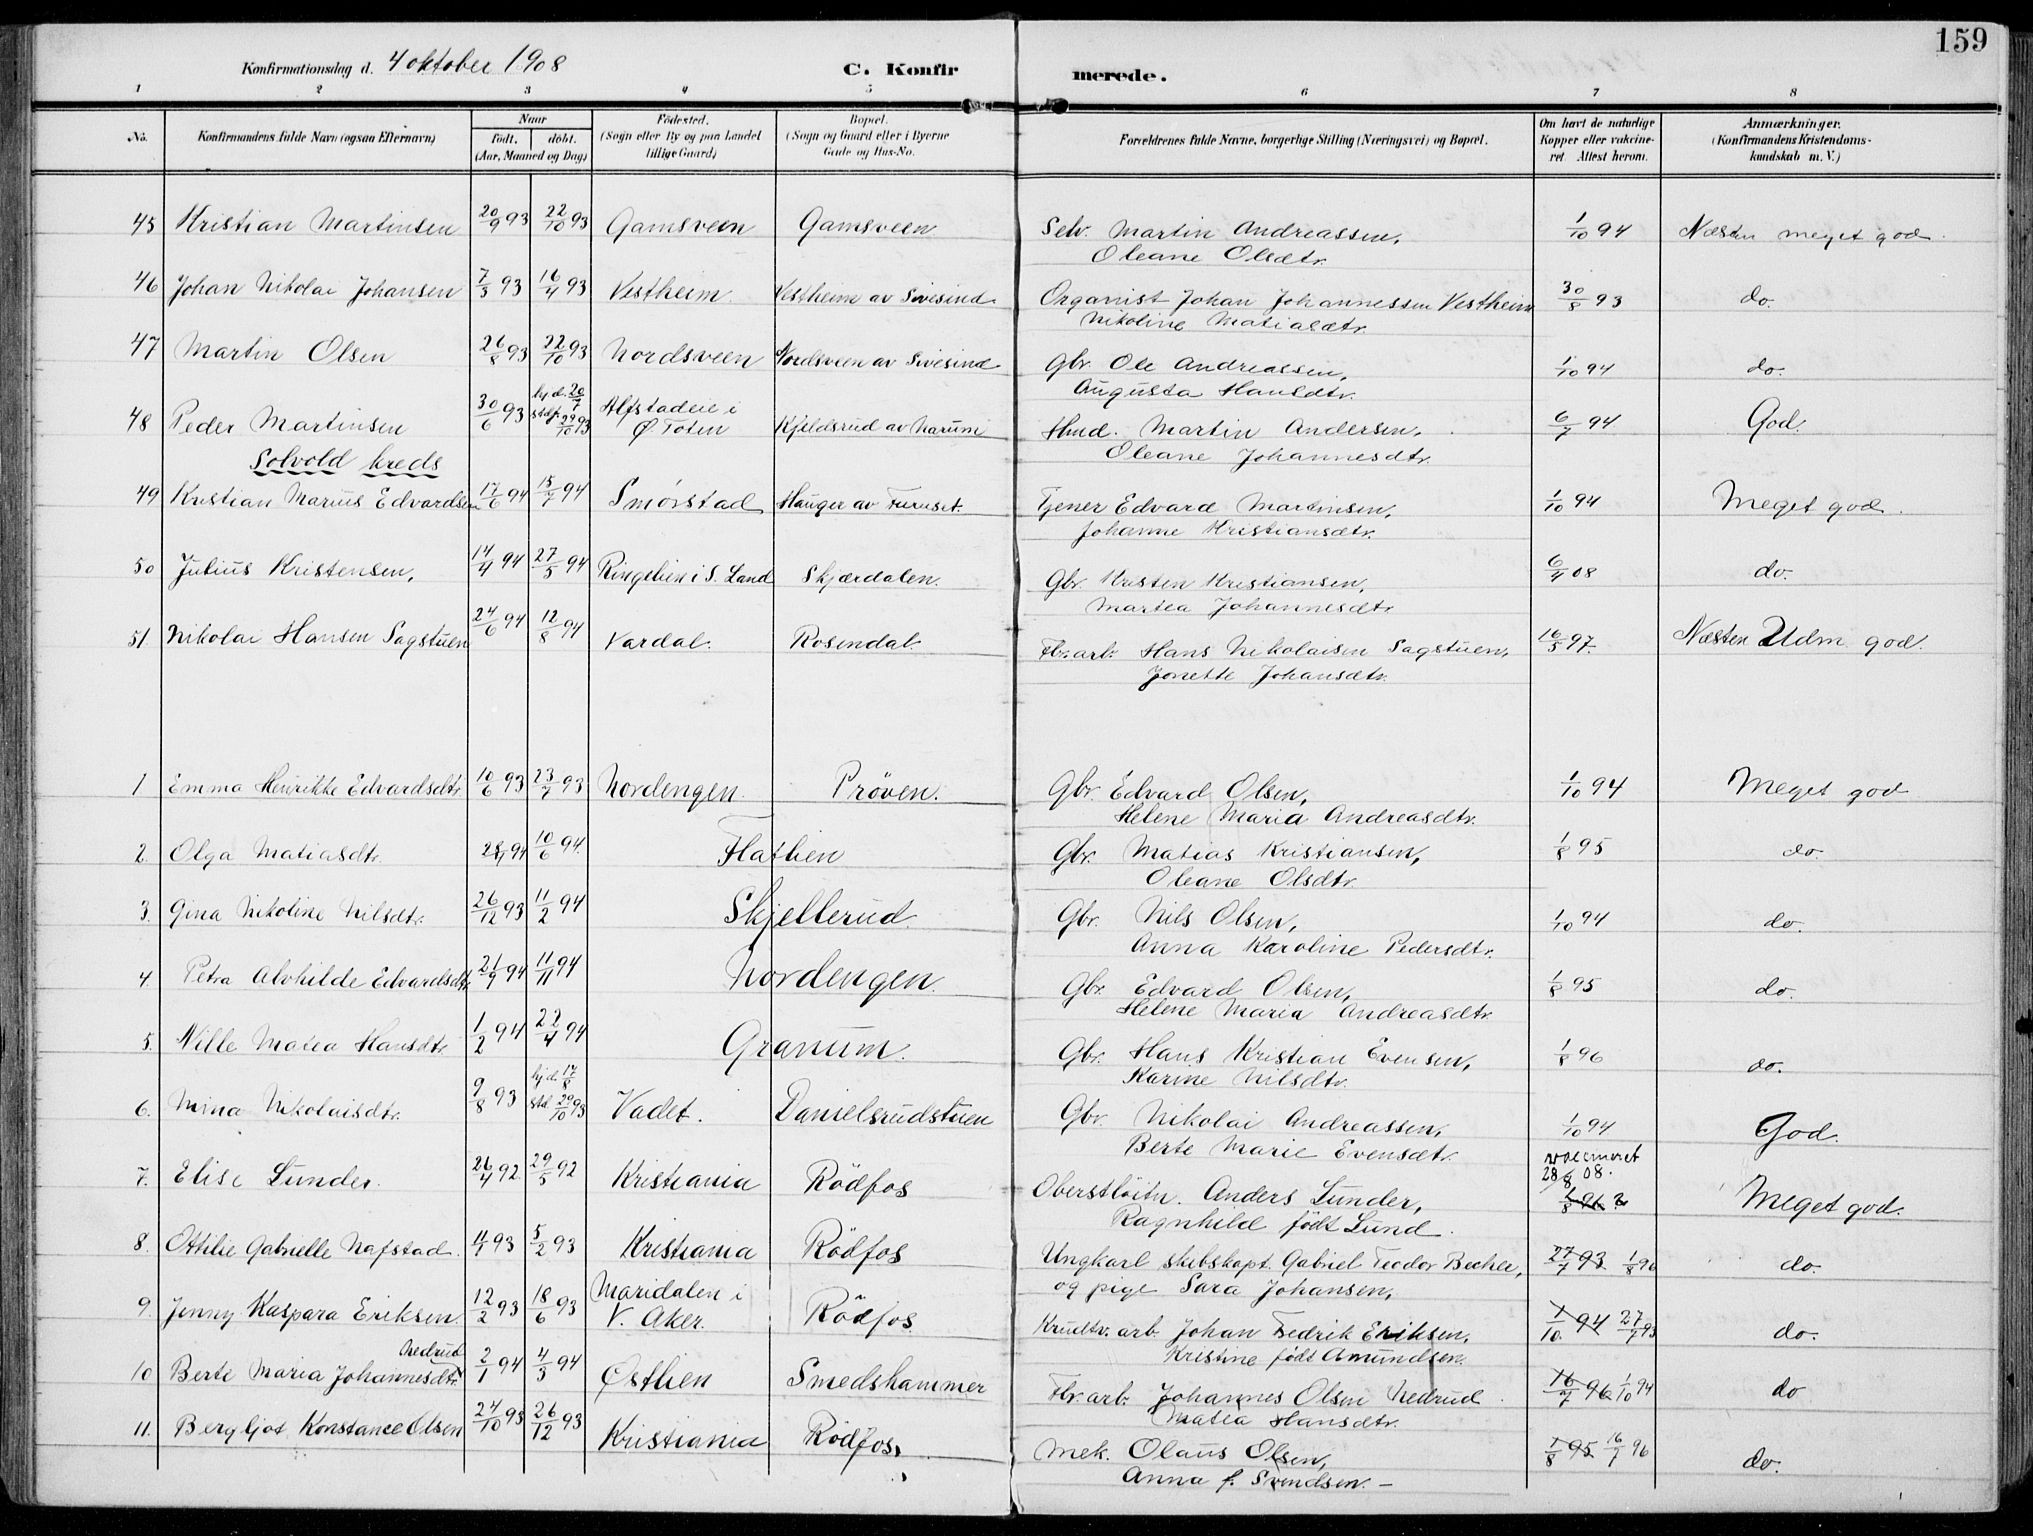 159
Konfirmationsdag d. 4 oktober 1908 C. Konfirmerede.
1 2 3 4 5 6 7 8
No. Konfirmandens fulde Navn (ogsaa Efternavn) Naar født. døbt. (Aar, Maaned og Dag) Fødested. (Sogn eller By og paa Landet tillige Gaard) Bopæl. (Sogn og Gaard eller i Byerne Gade og Hus-No. Forældrenes fulde Navne, borgerlige Stilling (Næringsvei) og Bopæl. Om havt de naturlige Kopper eller vakcineret. Attest herom. Anmærkninger. (Konfirmandens Kristendomskundskab m. V.)
45 Kristian Martinsen 20/9 93 22/10 93 Gamsveen Gamsveen Selv. Martin Andreassen, 1/10 94 Næsten meget god.
Oleane Olsdtr.
46 Johan Nikolai Johansen 7/3 93 16/4 93 Vestheim Vestheim av Sivesind. Organist Johan Johannessen Vestheim 30/8 93 do.
Nikoline Matiasdtr.
47 Martin Olsen 26/8 93 22/10 93 Nordsveen Nordsveen av Sivesind Gbr. Ole Andreassen, 1/10 94 do.
Augusta Hansdtr.
48 Peder Martinsen 30/6 93 hj.d. 20/7 stdf. 29/10 93 Alfstadeie i Ø. Toten Kjeldsrud av Narum Hmd. Martin Andersen, 6/7 94 God.
Oleane Johannesdtr.
Solvold kreds
49 Kristian Marius Edvardsen 17/6 94 15/7 94 Smørstad Hauger av Furuset. Tjener Edvard Martinsen, 1/10 94 Meget god.
Johanne Kristiansdtr.
50 Julius Kristensen, 14/4 94 27/5 94 Ringelien i S. Land Skjærdalen. Gbr. Kristen Kristiansen, 6/4 08 do.
Martea Johannesdtr.
51. Nikolai Hansen Sagstuen 24/6 94 12/8 94 Vardal. Rosendal. Fbr.arb. Hans Nikolaisen Sagstuen, 16/5 97. Næsten Udm. god.
Jonette Johansdtr.
1 Emma Henrikke Edvardsdtr. 10/6 93 23/7 93 Nordengen. Prøven. Gbr. Edvard Olsen, 1/10 94 Meget god
Helene Maria Andreasdtr.
2. Olga Matiasdtr. 94 10/6 94. Flatlien Gbr. Matias Kristiansen, 1/8 95 do.
Oleane Olsdtr.
3. Gina Nikoline Nilsdtr. 26/12 93 11/2 94 Skjellerud. Gbr. Nils Olsen, 1/10 94 do.
Anna Karoline Pedersdtr.
4. Petra Alvhilde Edvardsdtr. 21/9 94 11/11 94 Nordengen. Gbr. Edvard Olsen, 1/8 95 do.
Helene Maria Andreasdtr.
5. Nille Matea Hansdtr. 1/2 94 22/4 94 Granum. Gbr. Hans Kristian Evensen, 1/8 96 do.
Karine Nilsdtr.
6. Mina Nikolaisdtr. 9/8 93 hj.d. 17/8 std. 29/10 93 Vadet. Danielsrudstuen Gbr. Nikolai Andreassen, 1/10 94 God.
Berte Marie Evensdtr.
7. Elise Lunder. 26/4 92. 29/5 92 Kristiania Rödfos Oberstlöitn. Anders Lunder, vaccineret 28/8 08. 1/8 96 Meget god.
Ragnhild født Lund.
8. Ottilie Gabrielle Nafstad. 4/1 93 5/2 93 Kristiania Rödfos Ungkarl skibskapt. Gabriel Teodor Becher, 27/7 93 1/8 96 do.
og pige Sara Johansen,
9. Jenny Kaspara Eriksen. 12/2 93 18/6 93 Maridalen i V. Aker. Rödfos Krudtv. arb. Johan Fedrik Eriksen, 1/10 94 27/7 93 do.
Kristine født Amundsen.
10 Berte Maria Johannesdtr. Nedrud 2/1 94 4/3 94 Østlien Smedshammer Fbr.arb. Johannes Olsen Nedrud 16/7 96 1/10 94 do
Matea Hansdtr.
11. Bergljot Konstance Olsen 24/10 93 26/12 93 Kristiania Rödfos. Mek. Olaus Olsen, 1/8 95 16/7 96 do.
Anna f. Svendsen. –